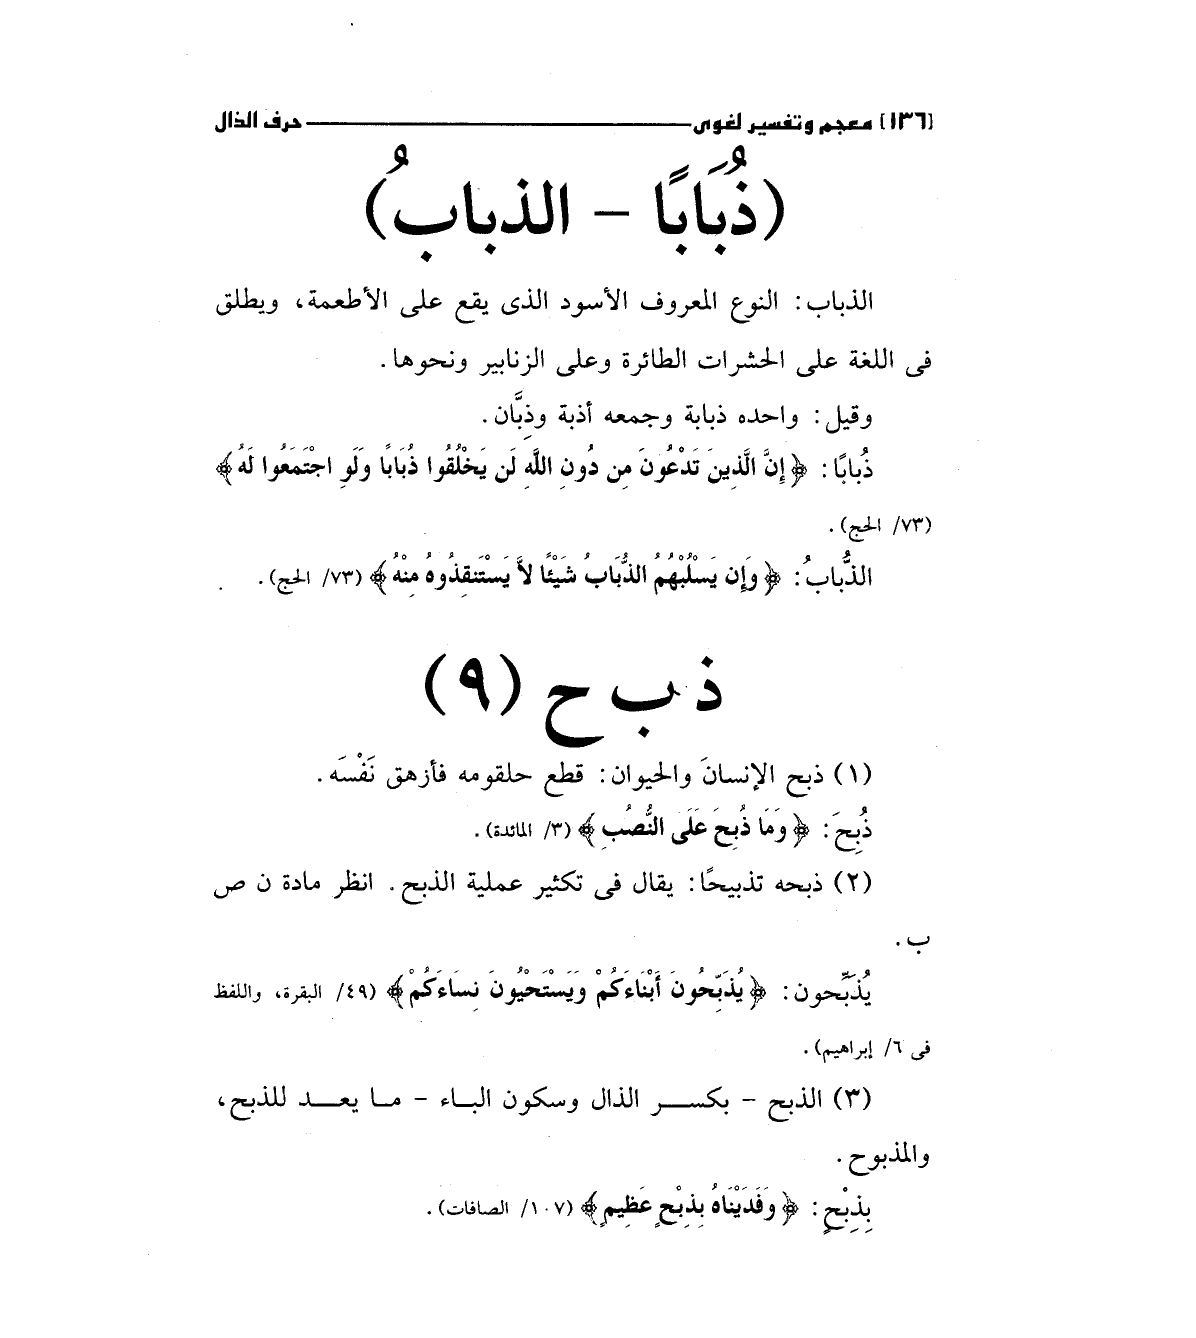 [١٣٦] معجم وتفسير لغوى حرف الذال
(ذُبَابًا - الذبابُ)
الذباب: النوع المعروف الأسود الذى يقع على الأطعمة، ويطلق
فى اللغة على الحشرات الطائرة وعلى الزنابير ونحوها.
وقيل: واحده ذبابة وجمعه أذبة وذِبَّان.
ذُبابًا: ﴿إِنَّ الَّذِينَ تَدْعُونَ مِن دُونِ اللَّهِ لَن يَخْلُقُوا ذُبَابًا وَلَوِ اجْتَمَعُوا لَهُ﴾
(٧٣/ الحج).
الذُّبابُ: ﴿وَإِن يَسْلُبْهُمُ الذُّبَابُ شَيْئًا لاَّ يَسْتَنقِذُوهُ مِنْهُ﴾ (٧٣/ الحج).
ذ ب ح (٩)
(١) ذبح الإنسانَ والحيوان: قطع حلقومه فأزهق نَفْسَه.
ذُبِحَ: ﴿وَمَا ذُبِحَ عَلَى النُّصُبِ﴾ (٣/ المائدة).
(٢) ذبحه تذبيحًا: يقال فى تكثير عملية الذبح. انظر مادة ن ص
ب.
يُذَبِّحون: ﴿يُذَبِّحُونَ أَبْنَاءَكُمْ وَيَسْتَحْيُونَ نِسَاءَكُمْ﴾ (٤٩/ البقرة، واللفظ
فى ٦/ إبراهيم).
(٣) الذبح - بكسر الذال وسكون الباء - ما يعد للذبح،
والمذبوح.
بِذِبْحٍ: ﴿وَفَدَيْنَاهُ بِذِبْحٍ عَظِيمٍ﴾ (١٠٧/ الصافات).